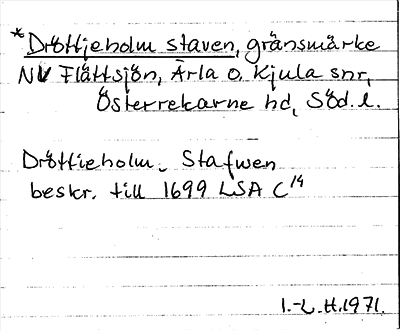 *Dröttjeholm staven, gränsmärke
NV Flättsjön, Ärla o. Kjula snr,
Österrekarne hd, Söd. l.
Dröttieholm. Stafwen
beskr. till 1699 LSA C14
I.-L. H. 1971.